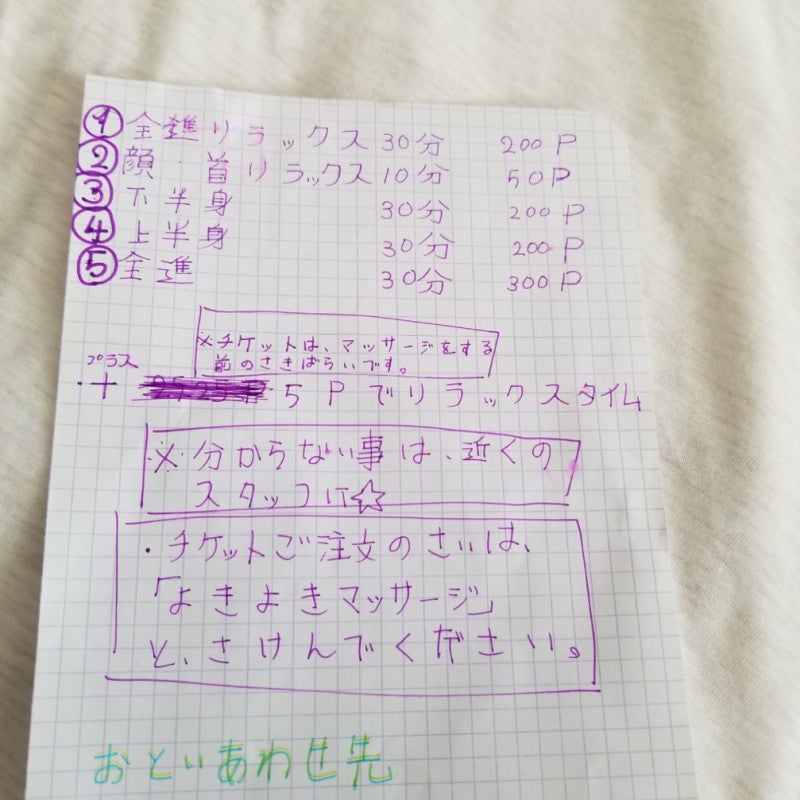 ① 全進リラックス 30分 200P
② 顔・首リラックス 10分 50P
③ 下半身 30分 200P
④ 上半身 30分 200P
⑤ 全進 30分 300P
※チケットは、マッサージをする
前のさきばらいです。
プラス
・+ 5Pでリラックスタイム
※分からない事は、近くの
スタッフに☆
・チケットご注文のさいは、
「よきよきマッサージ」
と、さけんでください。
おといあわせ先